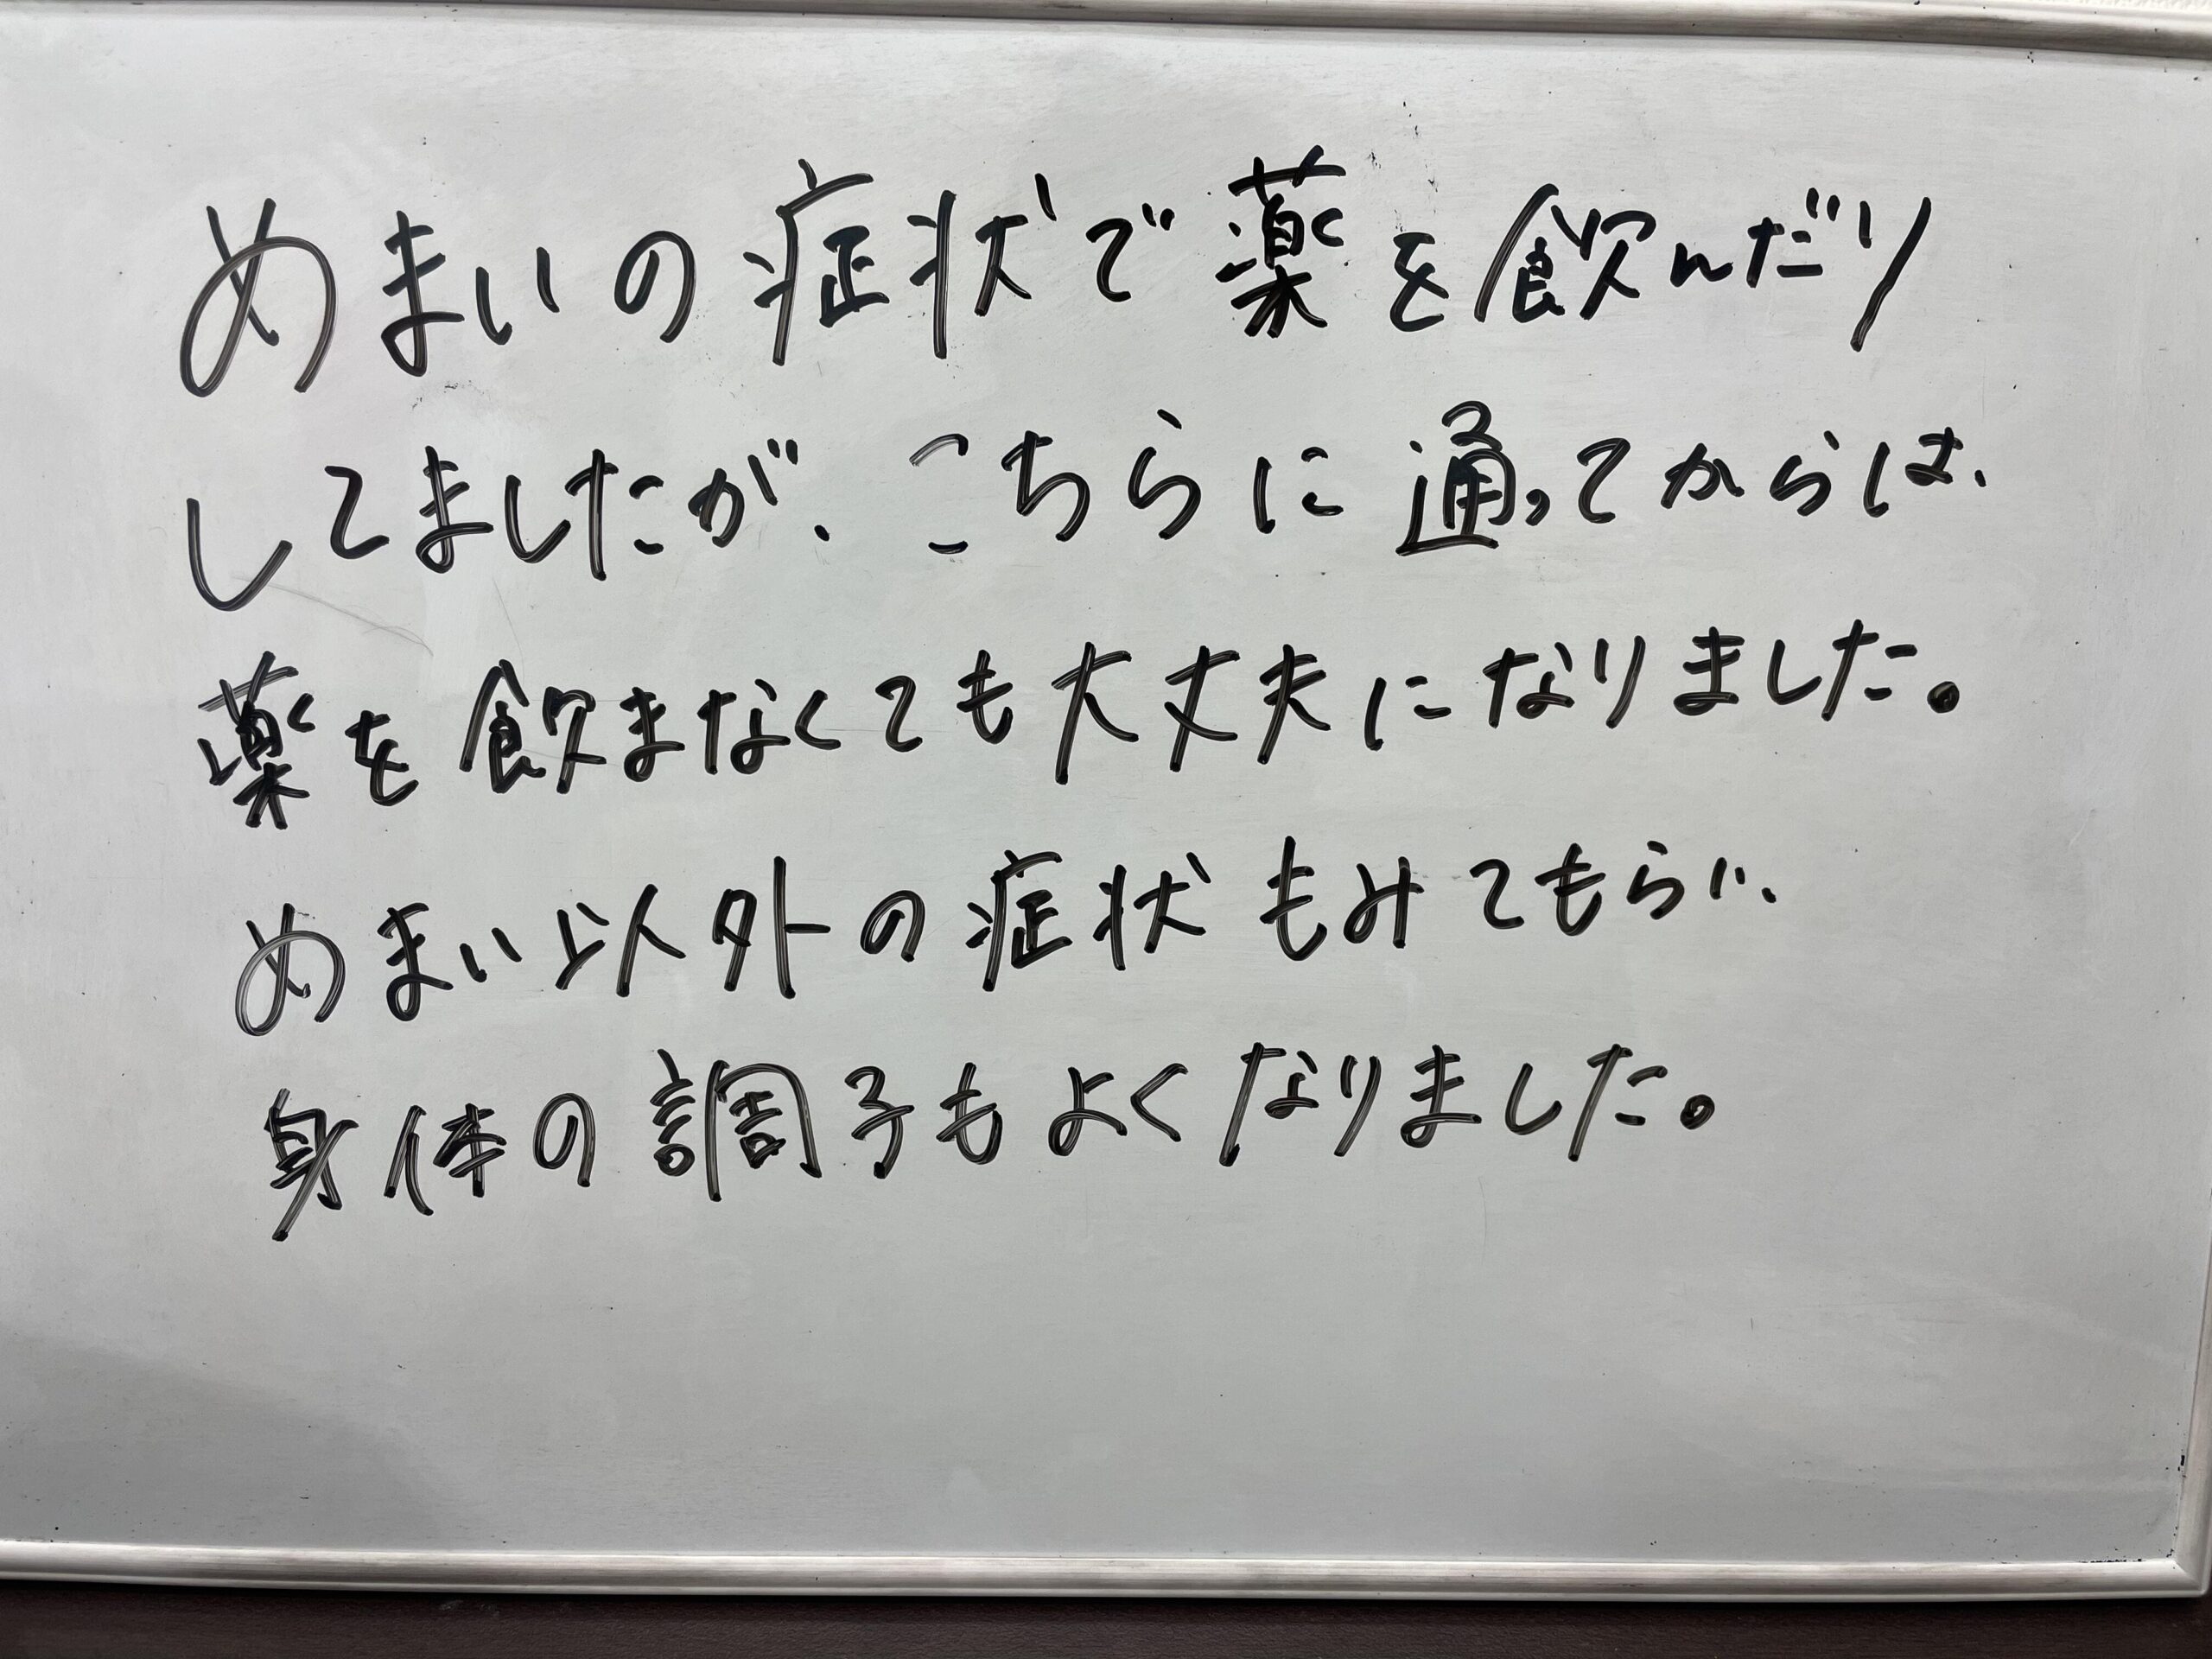 めまいの症状で薬を飲んだり
してましたが、こちらに通ってからは、
薬を飲まなくても大丈夫になりました。
めまい以外の症状もみてもらい、
身体の調子もよくなりました。